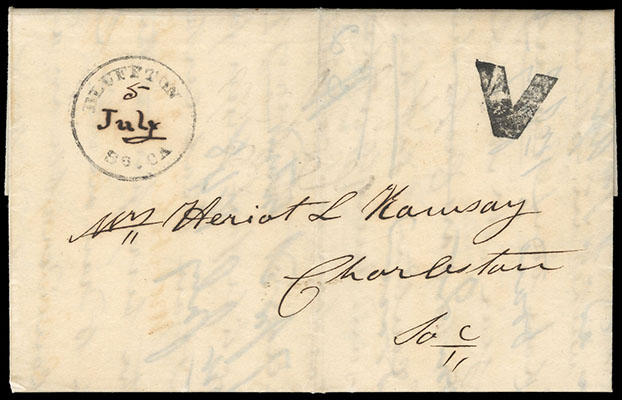 BLUFFTON
5
July
So. CA
V
Mrs Heriot L Ramsay
Charleston
So C